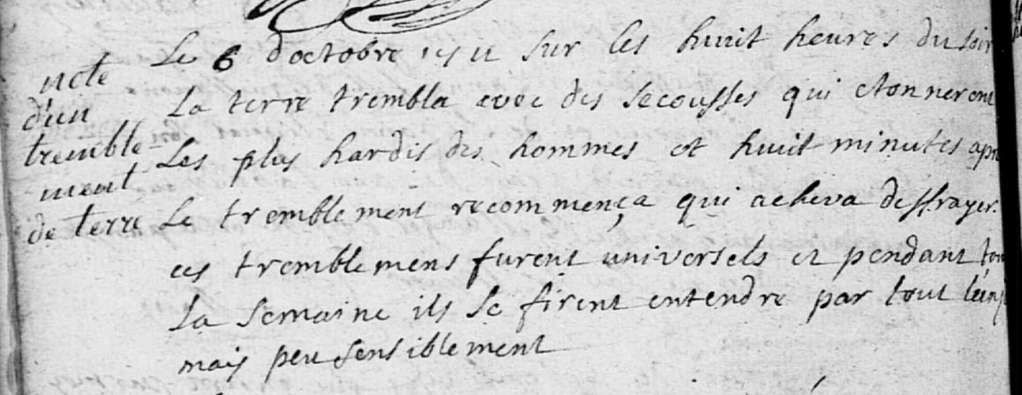 note
d'un
tremble
ment
de terre
Le 6 d'octobre 1711 sur les huit heures du soir
La terre trembla avec des secousses qui etonnerent
Les plus hardis des hommes et huit minutes apr
Le tremblement recommença qui acheva deffrayer.
ces tremblemens furent universels et pendant tou
La semaine ils se firent entendre par tout
mais peu sensiblement